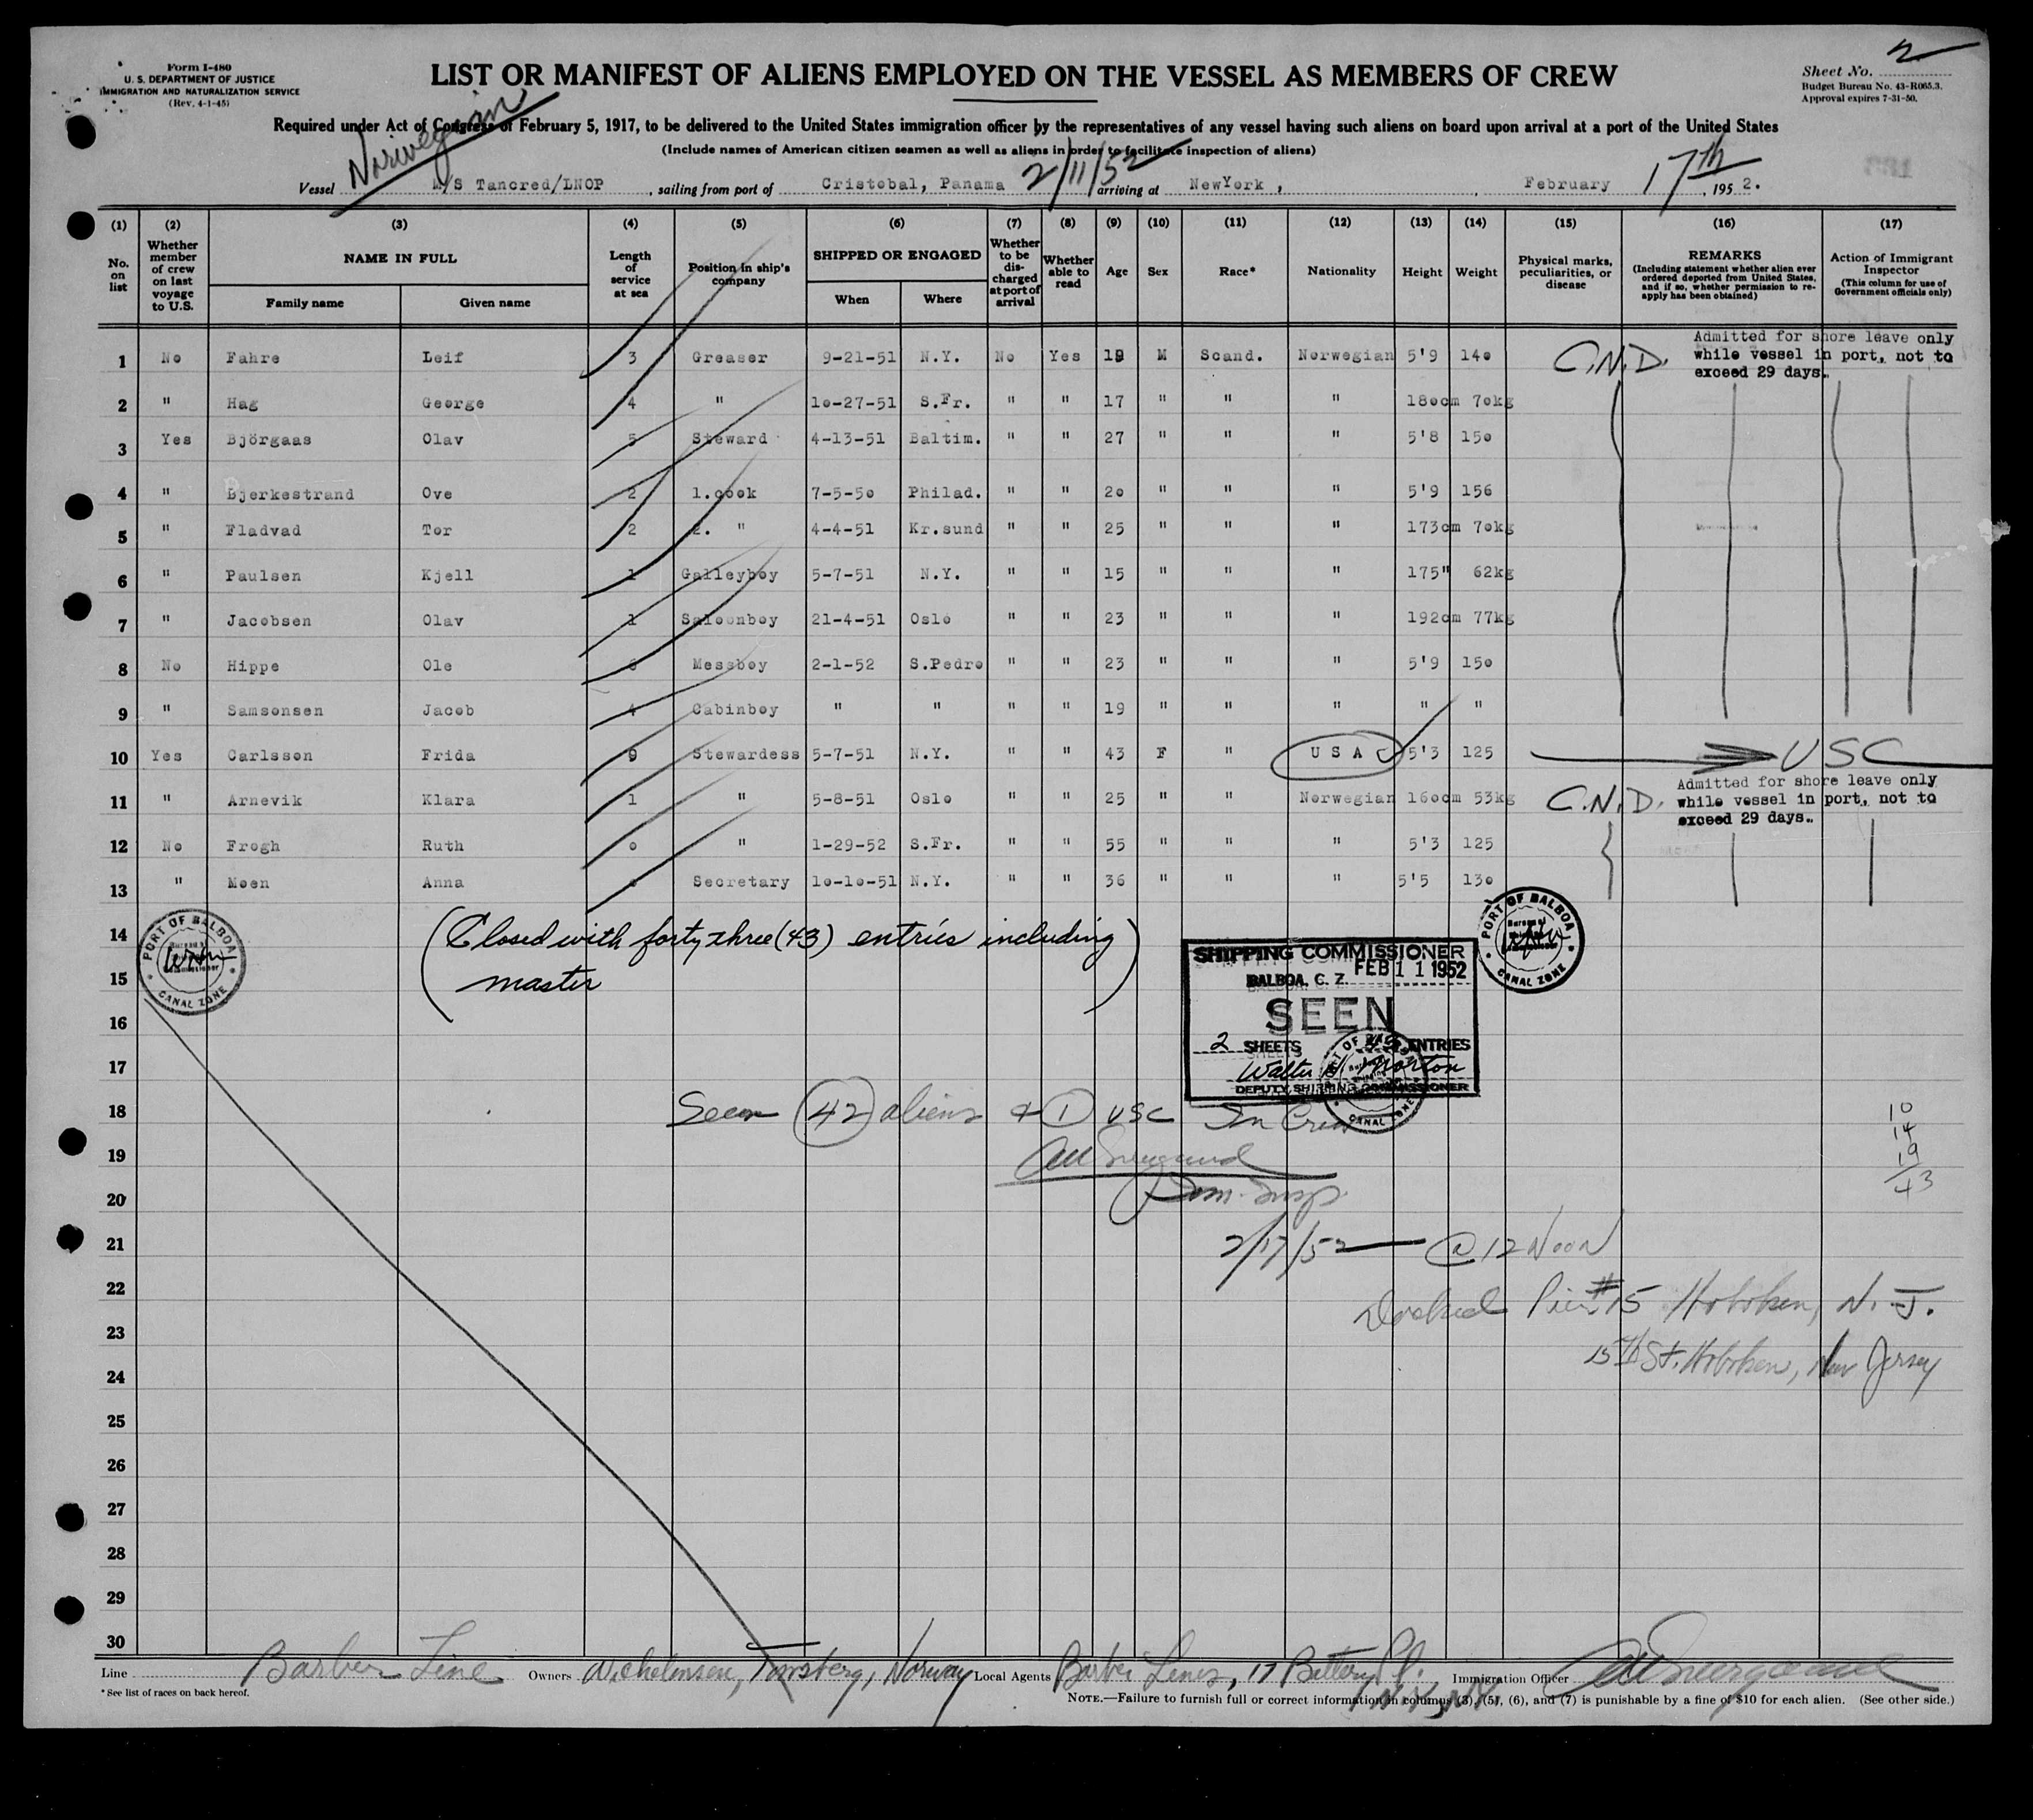 Form I-480
U. S. DEPARTMENT OF JUSTICE
IMMIGRATION AND NATURALIZATION SERVICE
(Rev. 4-1-45)
LIST OR MANIFEST OF ALIENS EMPLOYED ON THE VESSEL AS MEMBERS OF CREW
2
Sheet No.
Budget Bureau No. 43-R065.3.
Approval expires 7-31-50.
Required under Act of Congress of February 5, 1917, to be delivered to the United States immigration officer by the representatives of any vessel having such aliens on board upon arrival at a port of the United States
(Include names of American citizen seamen as well as aliens in order to facilitate inspection of aliens)
Norwegian
Vessel M/S Tancred/LNOP , sailing from port of Cristobal, Panama 2/11/52 arriving at NewYork , February 17th , 195 2.
(1) (2) (3) (4) (5) (6) (7) (8) (9) (10) (11) (12) (13) (14) (15) (16) (17)
No. on list
Whether member of crew on last voyage to U.S.
NAME IN FULL
Family name Given name
Length of service at sea
Position in ship's company
SHIPPED OR ENGAGED
When Where
Whether to be discharged at port of arrival
Whether able to read
Age
Sex
Race*
Nationality
Height
Weight
Physical marks, peculiarities, or disease
REMARKS
(Including statement whether alien ever ordered deported from United States, and if so, whether permission to re-apply has been obtained)
Action of Immigrant Inspector
(This column for use of Government officials only)
1 No Fahre Leif 3 Greaser 9-21-51 N.Y. No Yes 19 M Scand. Norwegian 5'9 14o C.N.D. Admitted for shore leave only while vessel in port, not to exceed 29 days.
2 " Hag George 4 " 1o-27-51 S.Fr. " " 17 " " " 18ocm 7okg
3 Yes Björgaas Olav 5 Steward 4-13-51 Baltim. " " 27 " " " 5'8 15o
4 " Bjerkestrand Ove 2 1.cook 7-5-5o Philad. " " 2o " " " 5'9 156
5 " Fladvad Tor 2 2. " 4-4-51 Kr.sund " " 25 " " " 173cm 7okg
6 " Paulsen Kjell 1 Galleyboy 5-7-51 N.Y. " " 15 " " " 175" 62kg
7 " Jacobsen Olav 1 Saloonboy 21-4-51 Oslo " " 23 " " " 192cm 77kg
8 No Hippe Ole Messboy 2-1-52 S.Pedro " " 23 " " " 5'9 15o
9 " Samsonsen Jacob 4 Cabinboy " " " " 19 " " " " "
10 Yes Carlsson Frida 9 Stewardess 5-7-51 N.Y. " " 43 F " U S A C 5'3 125 USC
11 " Arnevik Klara 1 " 5-8-51 Oslo " " 25 " " Norwegian 16ocm 53kg C.N.D. Admitted for shore leave only while vessel in port, not to exceed 29 days.
12 No Frogh Ruth o " 1-29-52 S.Fr. " " 55 " " " 5'3 125
13 " Moen Anna o Secretary 1o-1o-51 N.Y. " " 36 " " " 5'5 13o
14
(Closed with forty three (43) entries including
15
master)
PORT OF BALBOA
CANAL ZONE
SHIPPING COMMISSIONER
BALBOA, C. Z. FEB 11 1952
SEEN
2 SHEETS 43 ENTRIES
Walter Morton
DEPUTY SHIPPING COMMISSIONER
PORT OF BALBOA
CANAL ZONE
16
17
18 Seen 42 aliens & 1 USC In Crew
10
14
19
43
19
20 Imm. Insp.
21 2/17/52 @ 12 Noon
22 Docked Pier #15 Hoboken, N. J.
23
24 15th St. Hoboken, New Jersey
25
26
27
28
29
30
Line Barber Line Owners Wilhelmsen, Tonsberg, Norway Local Agents Barber Lines, 17 Battery Pl. Immigration Officer
* See list of races on back hereof.
NOTE.—Failure to furnish full or correct information in columns (3), (5), (6), and (7) is punishable by a fine of $10 for each alien. (See other side.)